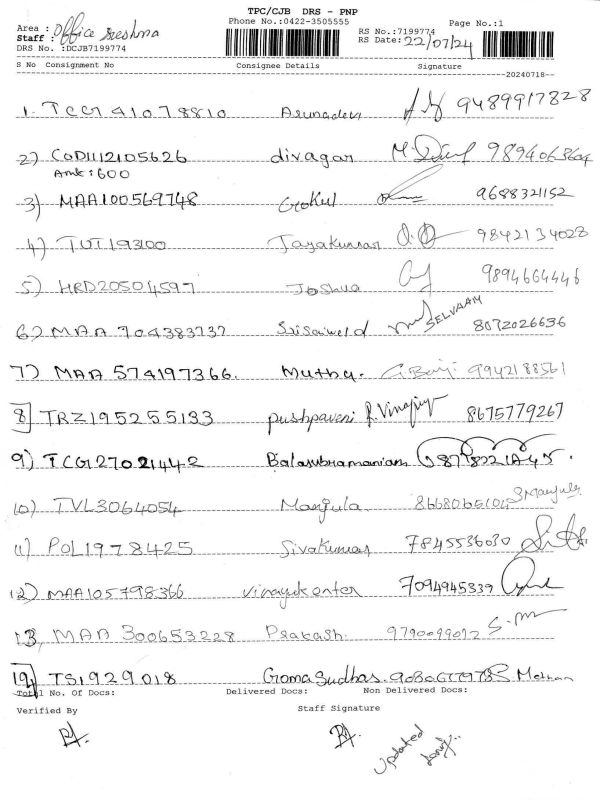 TPC/CJB DRS - PNP
Phone No.:0422-3505555
Page No.:1
Area : Office
Staff : Sreshma
DRS No. :DCJB7199774
RS No.:7199774
RS Date: 22/07/24
S No Consignment No Consignee Details Signature
20240718
1. TCG41078810 Arunadevi 9489917828
2) COD1112105626 divagar
Amt : 600
3) MAA100569748 Gokul 9688321152
4) TUT193100 Jayakumar 9842134028
5) HRD20504597 Joshua 9894664446
6) MAA 704383737 Srisaiweld SELVAAM 8072026636
7) MAA 574197366. Muthu. 9942188561
8) TRZ195255133 pushpaveni 8675779267
9) TCG127021442 Balasubramanian
10) TVL3064054 Manjula 8668065104 S Manjula
11) POL1978425 Sivakumar 7845536030
12) MAA105798366 Vinayakenter 7094945339
13, MAA 300653228 Prakash. 9790099012
14) TS1929018 GomaSudhas. Mohan
Total No. Of Docs: Delivered Docs: Non Delivered Docs:
Verified By Staff Signature
updated